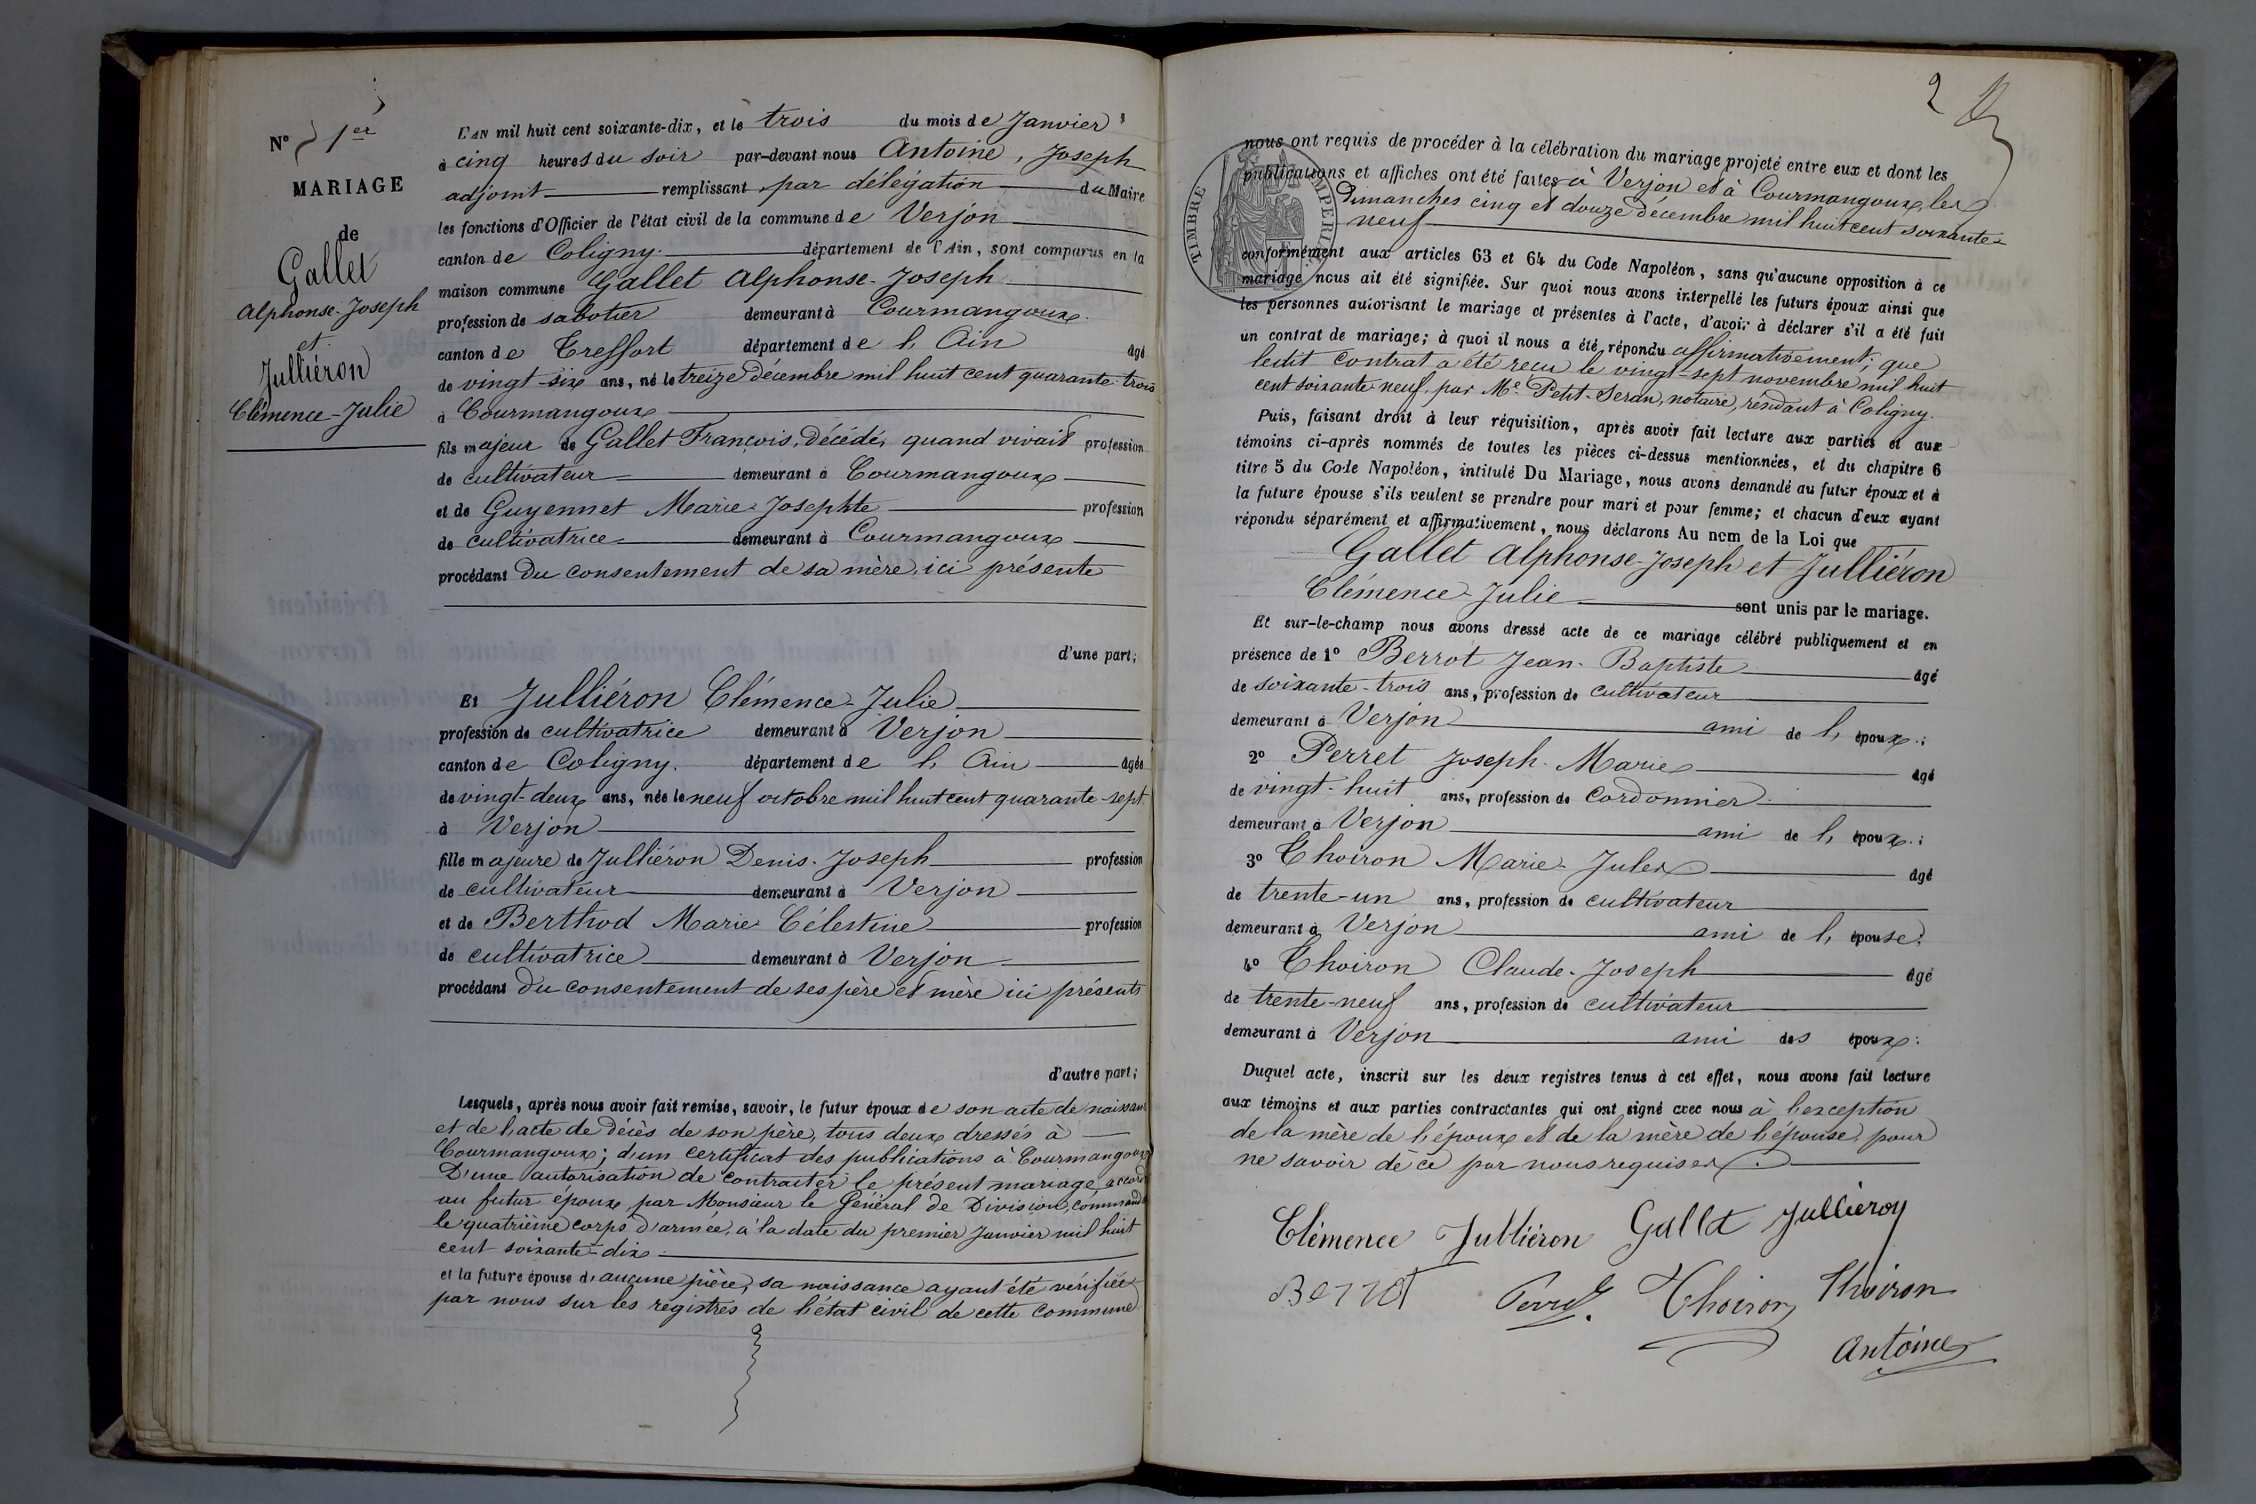 N° 1er
MARIAGE
de
Gallet
Alphonse-Joseph
et
Julliéron
Clémence-Julie
L'AN mil huit cent soixante-dix, et le trois du mois de Janvier
à cinq heures du soir par-devant nous Antoine, Joseph
adjoint remplissant par délégation du Maire
les fonctions d'Officier de l'état civil de la commune de Verjon
canton de Coligny département de l'Ain, sont comparus en la
maison commune Gallet Alphonse-Joseph
profession de sabotier demeurant à Courmangoux
canton de Treffort département de l'Ain âgé
de vingt-six ans, né le treize décembre mil huit cent quarante-trois
à Courmangoux
fils majeur de Gallet François, décédé, quand vivait profession
de cultivateur demeurant à Courmangoux
et de Guyennet Marie-Josephte profession
de cultivatrice demeurant à Courmangoux
procédant du consentement de sa mère, ici présente
d'une part;
Et Julliéron Clémence-Julie
profession de cultivatrice demeurant à Verjon
canton de Coligny. département de l'Ain âgée
de vingt-deux ans, née le neuf octobre mil huit cent quarante-sept
à Verjon
fille majeure de Julliéron Denis-Joseph profession
de cultivateur demeurant à Verjon
et de Berthod Marie Célestine profession
de cultivatrice demeurant à Verjon
procédant du consentement de ses père et mère ici présents
d'autre part;
Lesquels, après nous avoir fait remise, savoir, le futur époux de son acte de naissance
et de l'acte de décès de son père, tous deux dressés à
Courmangoux; d'un certificat des publications à Courmangoux
D'une autorisation de contracter le présent mariage, accordé
au futur époux par Monsieur le Général de Division, command
le quatrième corps d'armée, à la date du premier Janvier mil huit
cent soixante-dix
et la future épouse d'aucune pièce, sa naissance ayant été vérifiée
par nous sur les registres de l'état civil de cette commune
2
TIMBRE IMPERIAL
nous ont requis de procéder à la célébration du mariage projeté entre eux et dont les
publications et affiches ont été faites à Verjon et à Courmangoux, les
Dimanches cinq et douze décembre mil huit cent soixante-
neuf
conformément aux articles 63 et 64 du Code Napoléon, sans qu'aucune opposition à ce
mariage nous ait été signifiée. Sur quoi nous avons interpellé les futurs époux ainsi que
les personnes autorisant le mariage et présentes à l'acte, d'avoir à déclarer s'il a été fait
un contrat de mariage; à quoi il nous a été répondu affirmativement; que
ledit contrat a été reçu le vingt-sept novembre mil huit
cent soixante neuf, par Me Petit-Seran, notaire, résidant à Coligny.
Puis, faisant droit à leur réquisition, après avoir fait lecture aux parties et aux
témoins ci-après nommés de toutes les pièces ci-dessus mentionnées, et du chapitre 6
titre 5 du Code Napoléon, intitulé Du Mariage, nous avons demandé au futur époux et à
la future épouse s'ils veulent se prendre pour mari et pour femme; et chacun d'eux ayant
répondu séparément et affirmativement, nous déclarons Au nom de la Loi que
Gallet Alphonse-Joseph et Julliéron
Clémence-Julie sont unis par le mariage.
Et sur-le-champ nous avons dressé acte de ce mariage célébré publiquement et en
présence de 1° Berrot Jean-Baptiste âgé
de soixante-trois ans, profession de cultivateur
demeurant à Verjon ami de l'époux;
2° Perret Joseph-Marie âgé
de vingt-huit ans, profession de cordonnier
demeurant à Verjon ami de l'époux;
3° Thoiron Marie-Jules âgé
de trente-un ans, profession de cultivateur
demeurant à Verjon ami de l'épouse;
4° Thoiron Claude-Joseph âgé
de trente-neuf ans, profession de cultivateur
demeurant à Verjon ami des époux:
Duquel acte, inscrit sur les deux registres tenus à cet effet, nous avons fait lecture
aux témoins et aux parties contractantes qui ont signé avec nous à l'exception
de la mère de l'époux et de la mère de l'épouse, pour
ne savoir de ce par nous requises.
Clémence Julliéron Gallet Julliéron
Berrot Perret Thoiron Thoiron
Antoine